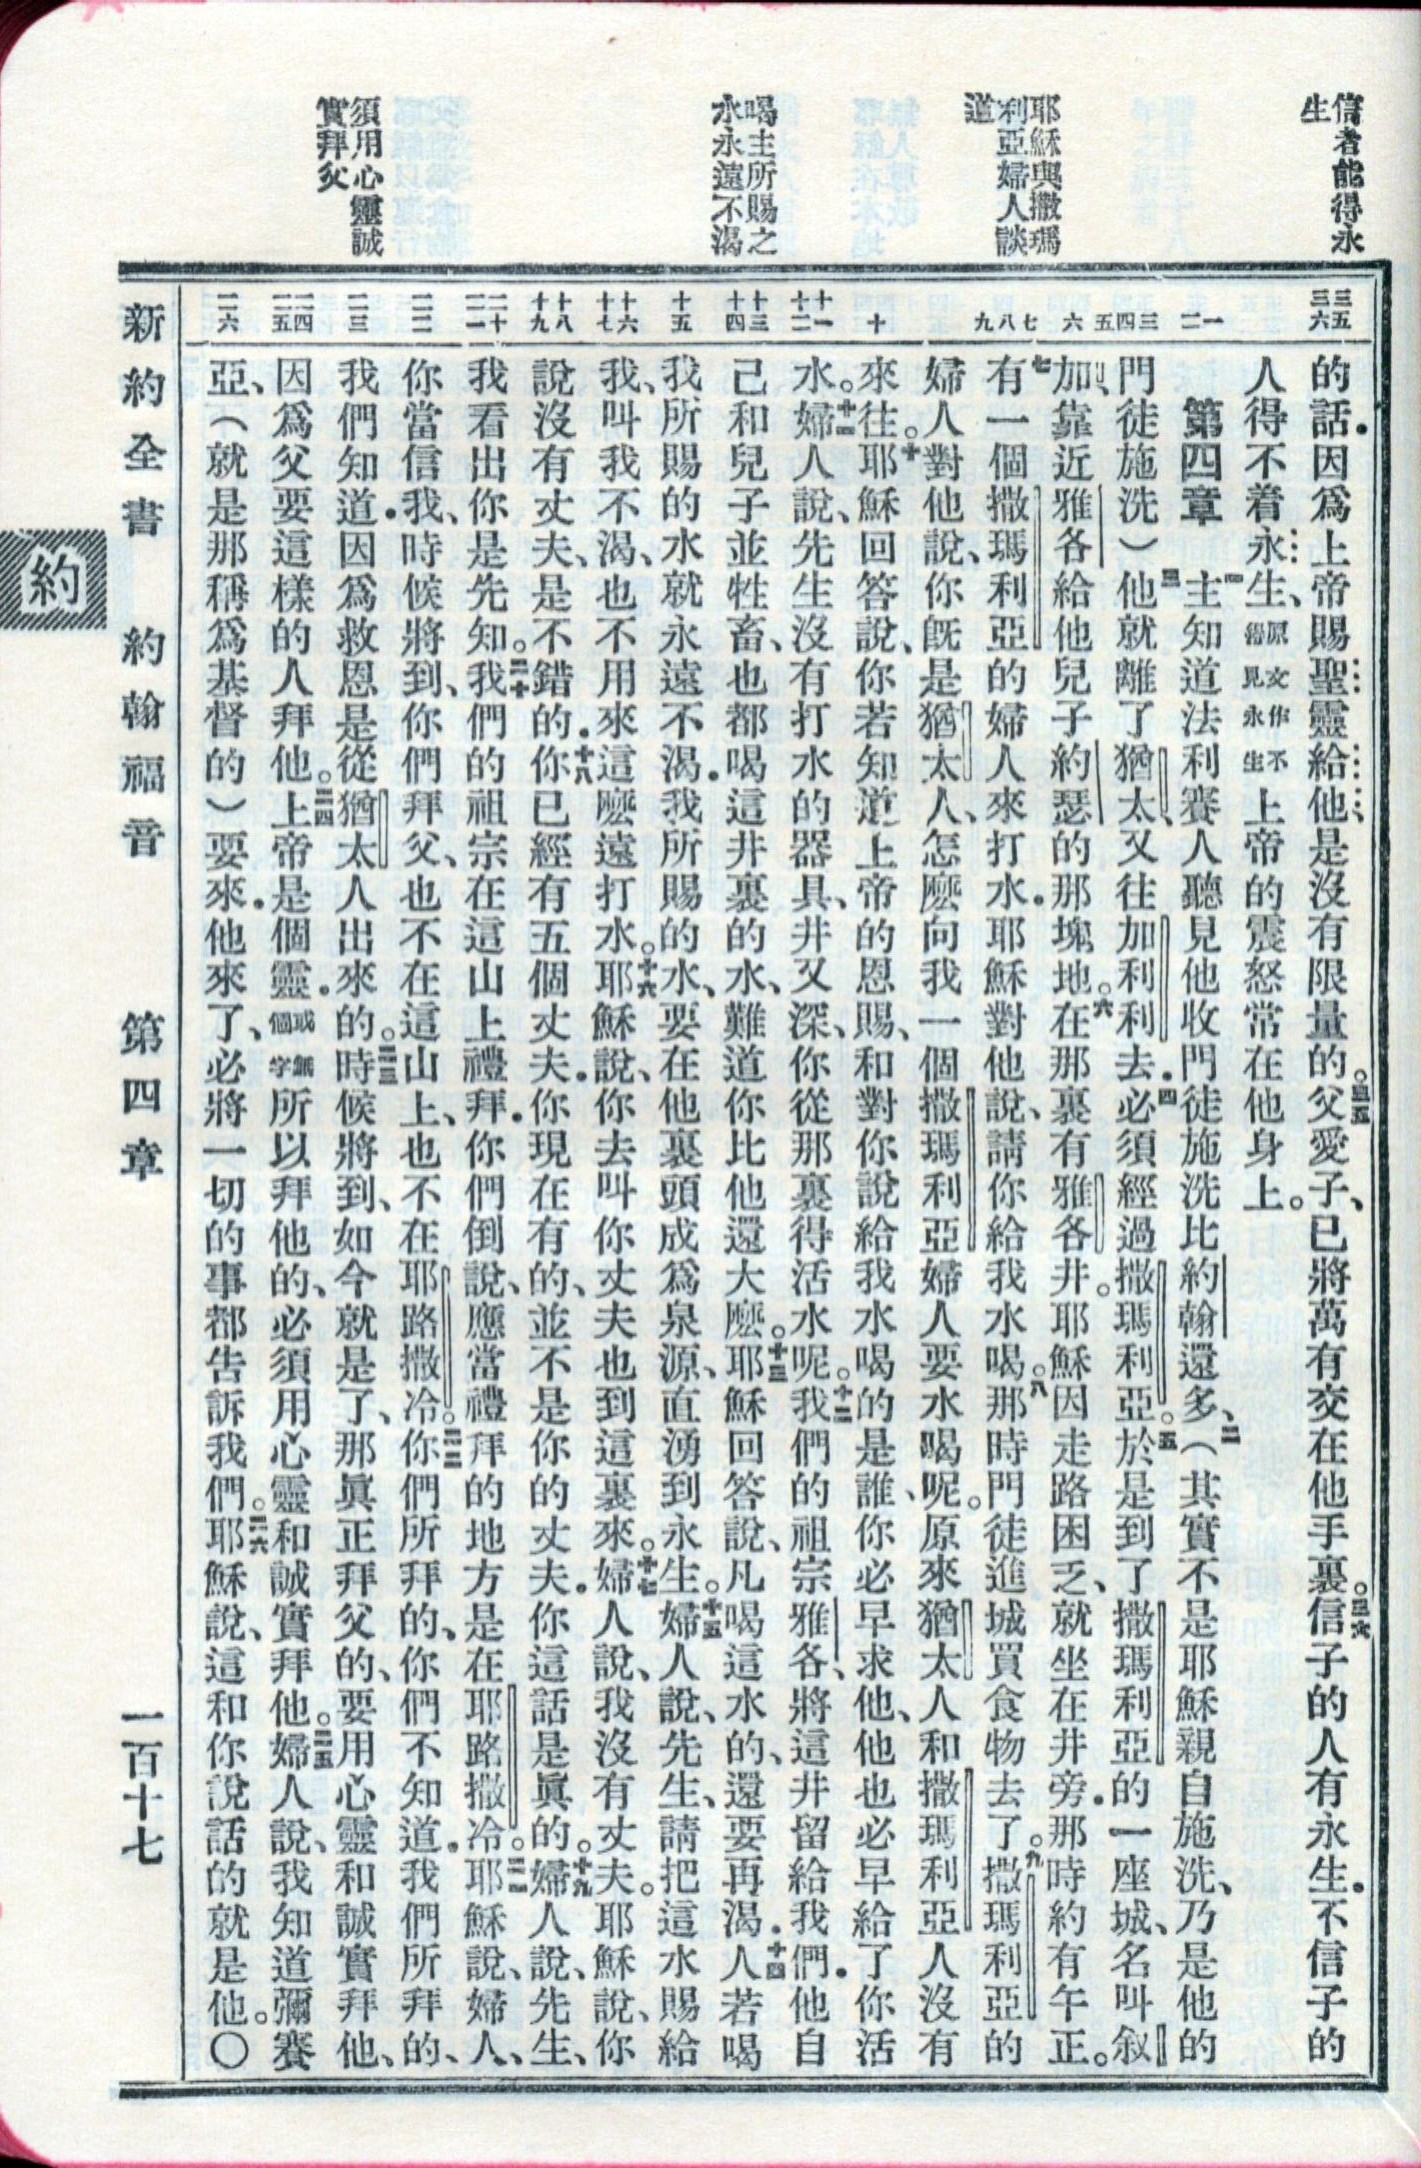 信者能得永
生
耶穌與撒瑪
利亞婦人談
道
喝主所賜之
水永遠不渴
須用心靈誠
實拜父
三五
三六
一
二
三
四
五
六
七
八
九
十
十一
十二
十三
十四
十五
十六
十七
十八
十九
二十
二一
二二
二三
二四
二五
二六
的話．因爲上帝賜聖靈給他、是沒有限量的。三五父愛子、已將萬有交在他手裏。三六信子的人有永生．不信子的
人得不着永生、原文作不得見永生上帝的震怒常在他身上。
第四章 一主知道法利賽人聽見他收門徒施洗比約翰還多、二（其實不是耶穌親自施洗、乃是他的
門徒施洗）三他就離了猶太、又往加利利去．四必須經過撒瑪利亞。五於是到了撒瑪利亞的一座城、名叫叙
加、靠近雅各給他兒子約瑟的那塊地。六在那裏有雅各井。耶穌因走路困乏、就坐在井旁．那時約有午正。
七有一個撒瑪利亞的婦人來打水．耶穌對他說、請你給我水喝。八那時門徒進城買食物去了。九撒瑪利亞的
婦人對他說、你旣是猶太人、怎麼向我一個撒瑪利亞婦人要水喝呢。原來猶太人和撒瑪利亞人沒有
來往。十耶穌回答說、你若知道上帝的恩賜、和對你說給我水喝的是誰、你必早求他、他也必早給了你活
水。十一婦人說、先生沒有打水的器具、井又深、你從那裏得活水呢。十二我們的祖宗雅各、將這井留給我們．他自
己和兒子並牲畜、也都喝這井裏的水、難道你比他還大麼。十三耶穌回答說、凡喝這水的、還要再渴．十四人若喝
我所賜的水就永遠不渴．我所賜的水、要在他裏頭成爲泉源、直湧到永生。十五婦人說、先生、請把這水賜給
我、叫我不渴、也不用來這麼遠打水。十六耶穌說、你去叫你丈夫也到這裏來。十七婦人說、我沒有丈夫。耶穌說、你
說沒有丈夫、是不錯的．十八你已經有五個丈夫．你現在有的、並不是你的丈夫．你這話是眞的。十九婦人說、先生、
我看出你是先知。二十我們的祖宗在這山上禮拜．你們倒說、應當禮拜的地方是在耶路撒冷。二一耶穌說、婦人、
你當信我、時候將到、你們拜父、也不在這山上、也不在耶路撒冷。二二你們所拜的、你們不知道．我們所拜的、
我們知道．因爲救恩是從猶太人出來的。二三時候將到、如今就是了、那眞正拜父的、要用心靈和誠實拜他、
因爲父要這樣的人拜他。二四上帝是個靈．或無個字所以拜他的、必須用心靈和誠實拜他。二五婦人說、我知道彌賽
亞、（就是那稱爲基督的）要來．他來了、必將一切的事都告訴我們。二六耶穌說、這和你說話的就是他。〇
新約全書 約翰福音 第四章 一百十七
約